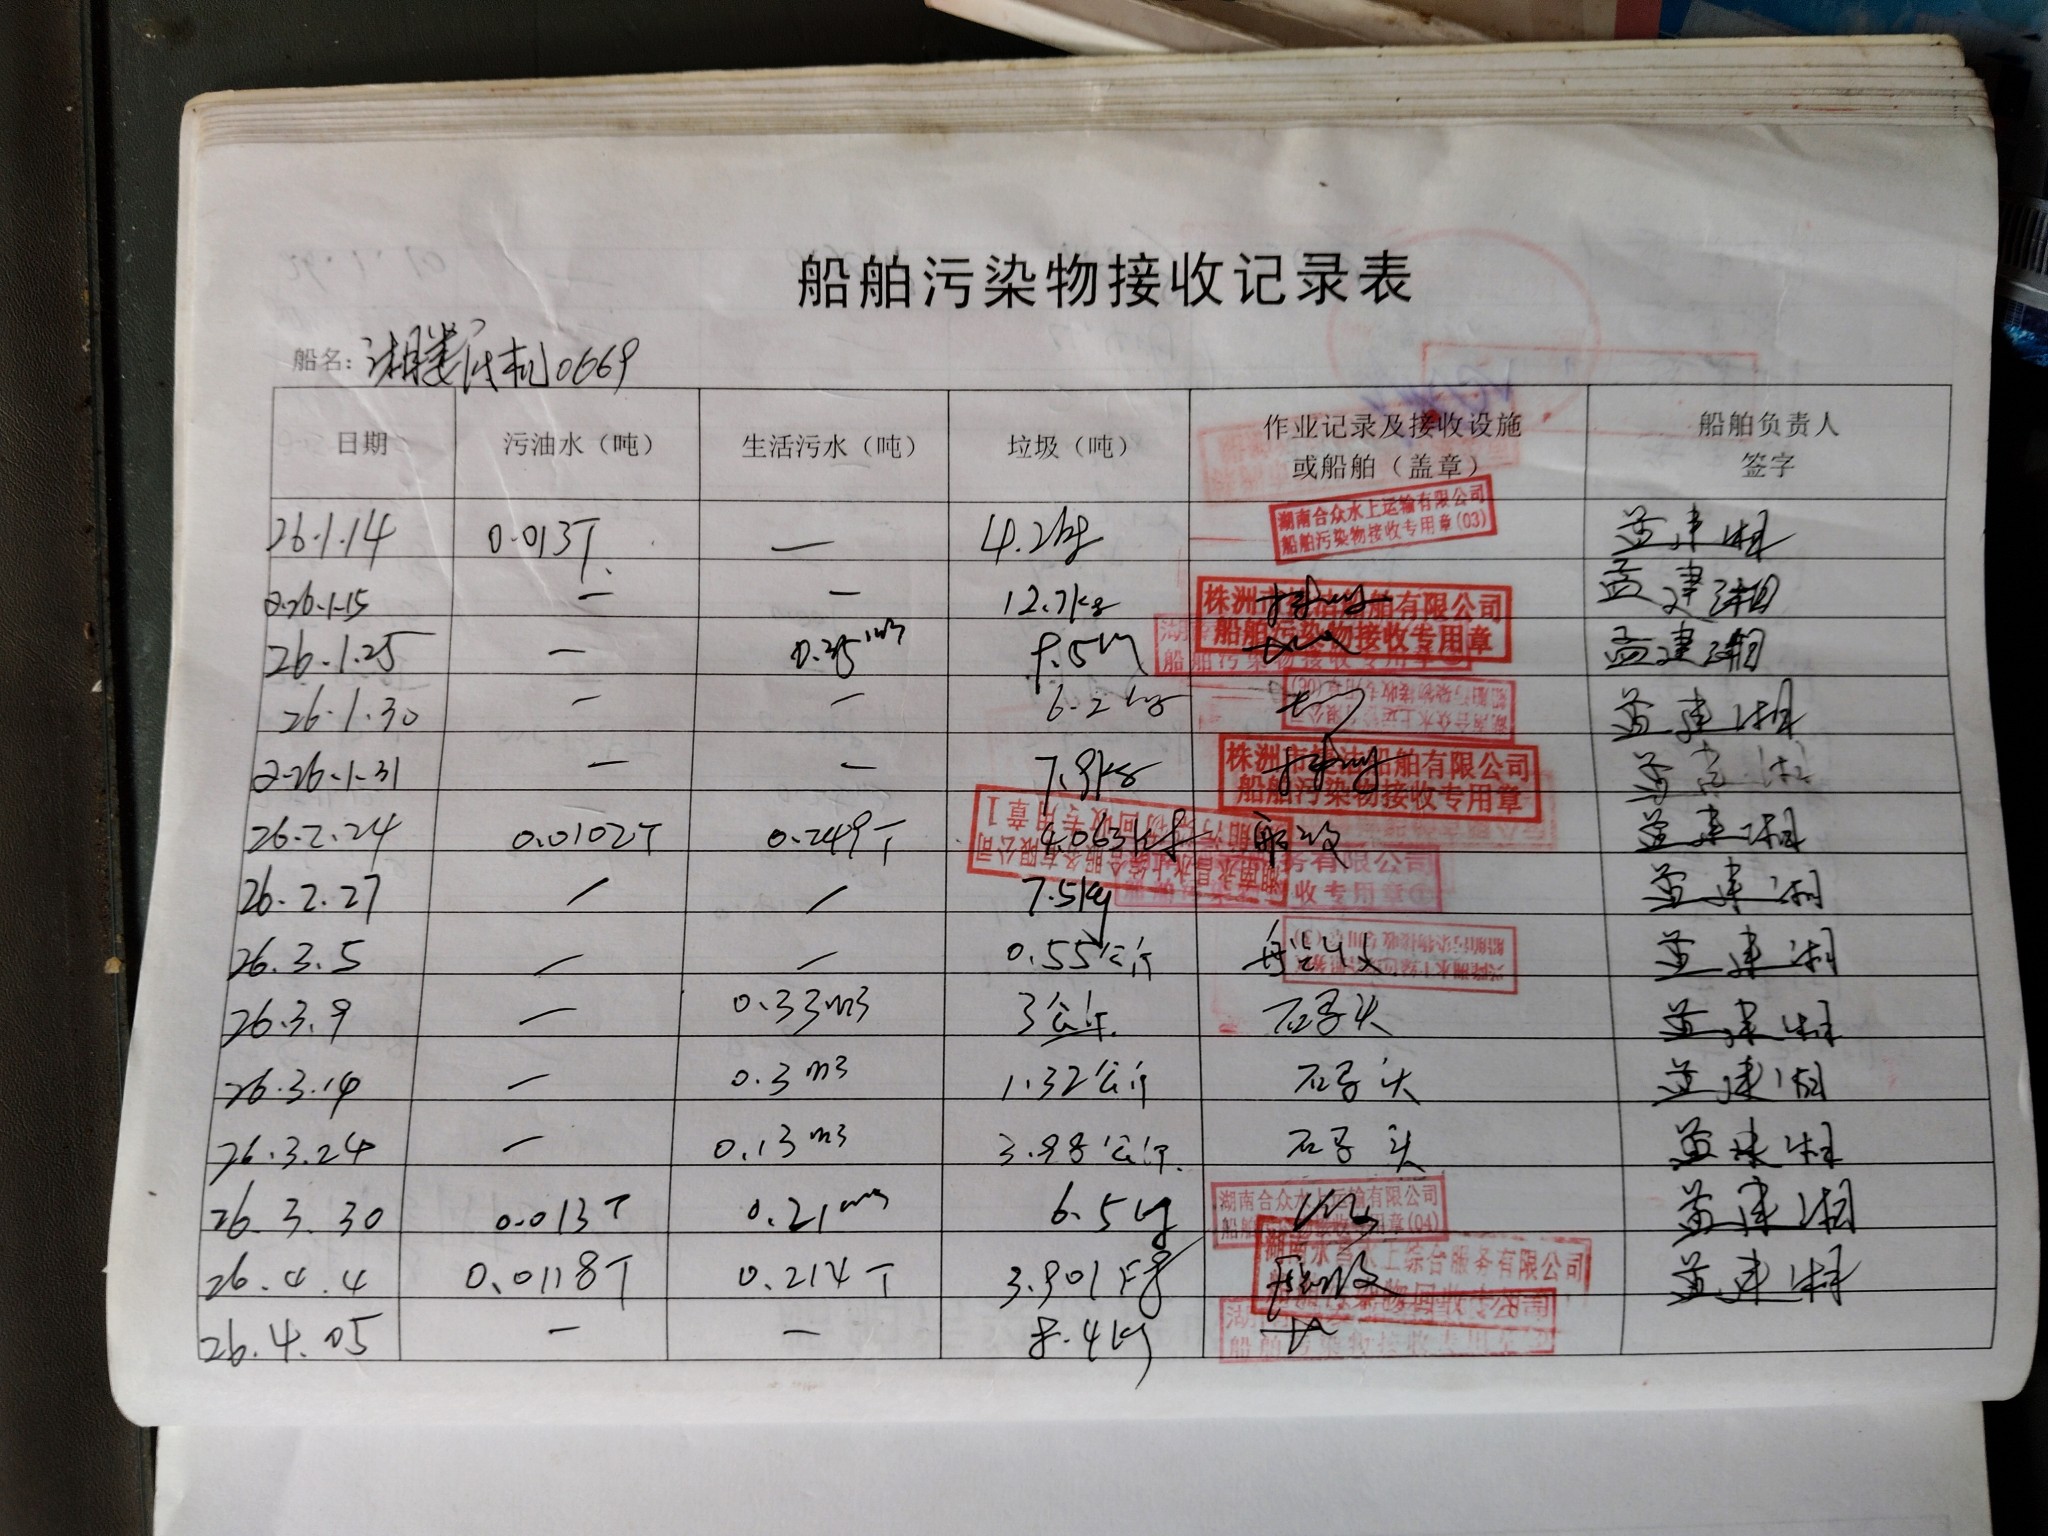 船舶污染物接收记录表
船名: 湘娄底机0669
日期 污油水（吨） 生活污水（吨） 垃圾（吨） 作业记录及接收设施或船舶（盖章） 船舶负责人签字
26.1.14 0.013T — 4.2kg 湖南合众水上运输有限公司 船舶污染物接收专用章(03) 孟建湘
2026.1.15 — — 12.7kg 株洲 船舶有限公司 船舶污染物接收专用章 孟建湘
26.1.25 — m3 8.5kg 孟建湘
26.1.30 — — 6.2kg 孟建湘
2026.1.31 — — 7.9kg 株洲市 船舶有限公司 船舶污染物接收专用章 孟建湘
26.2.24 0.0102T 0.249T 4.063kg 船收 孟建湘
26.2.27 / / 7.5kg 孟建湘
26.3.5 — — 0.55公斤 孟建湘
26.3.9 — 0.33m3 3公斤. 石子头 孟建湘
26.3.14 — 0.3m3 1.32公斤 石子头 孟建湘
26.3.24 — 0.13m3 3.98公斤. 石子头 孟建湘
26.3.30 0.013T 0.21m3 6.5kg 湖南合众水上运输有限公司 (04) 孟建湘
26.4.4 0.0118T 0.214T 3.901千克 湖南永昌水上综合服务有限公司 孟建湘
26.4.05 — — 8.4kg